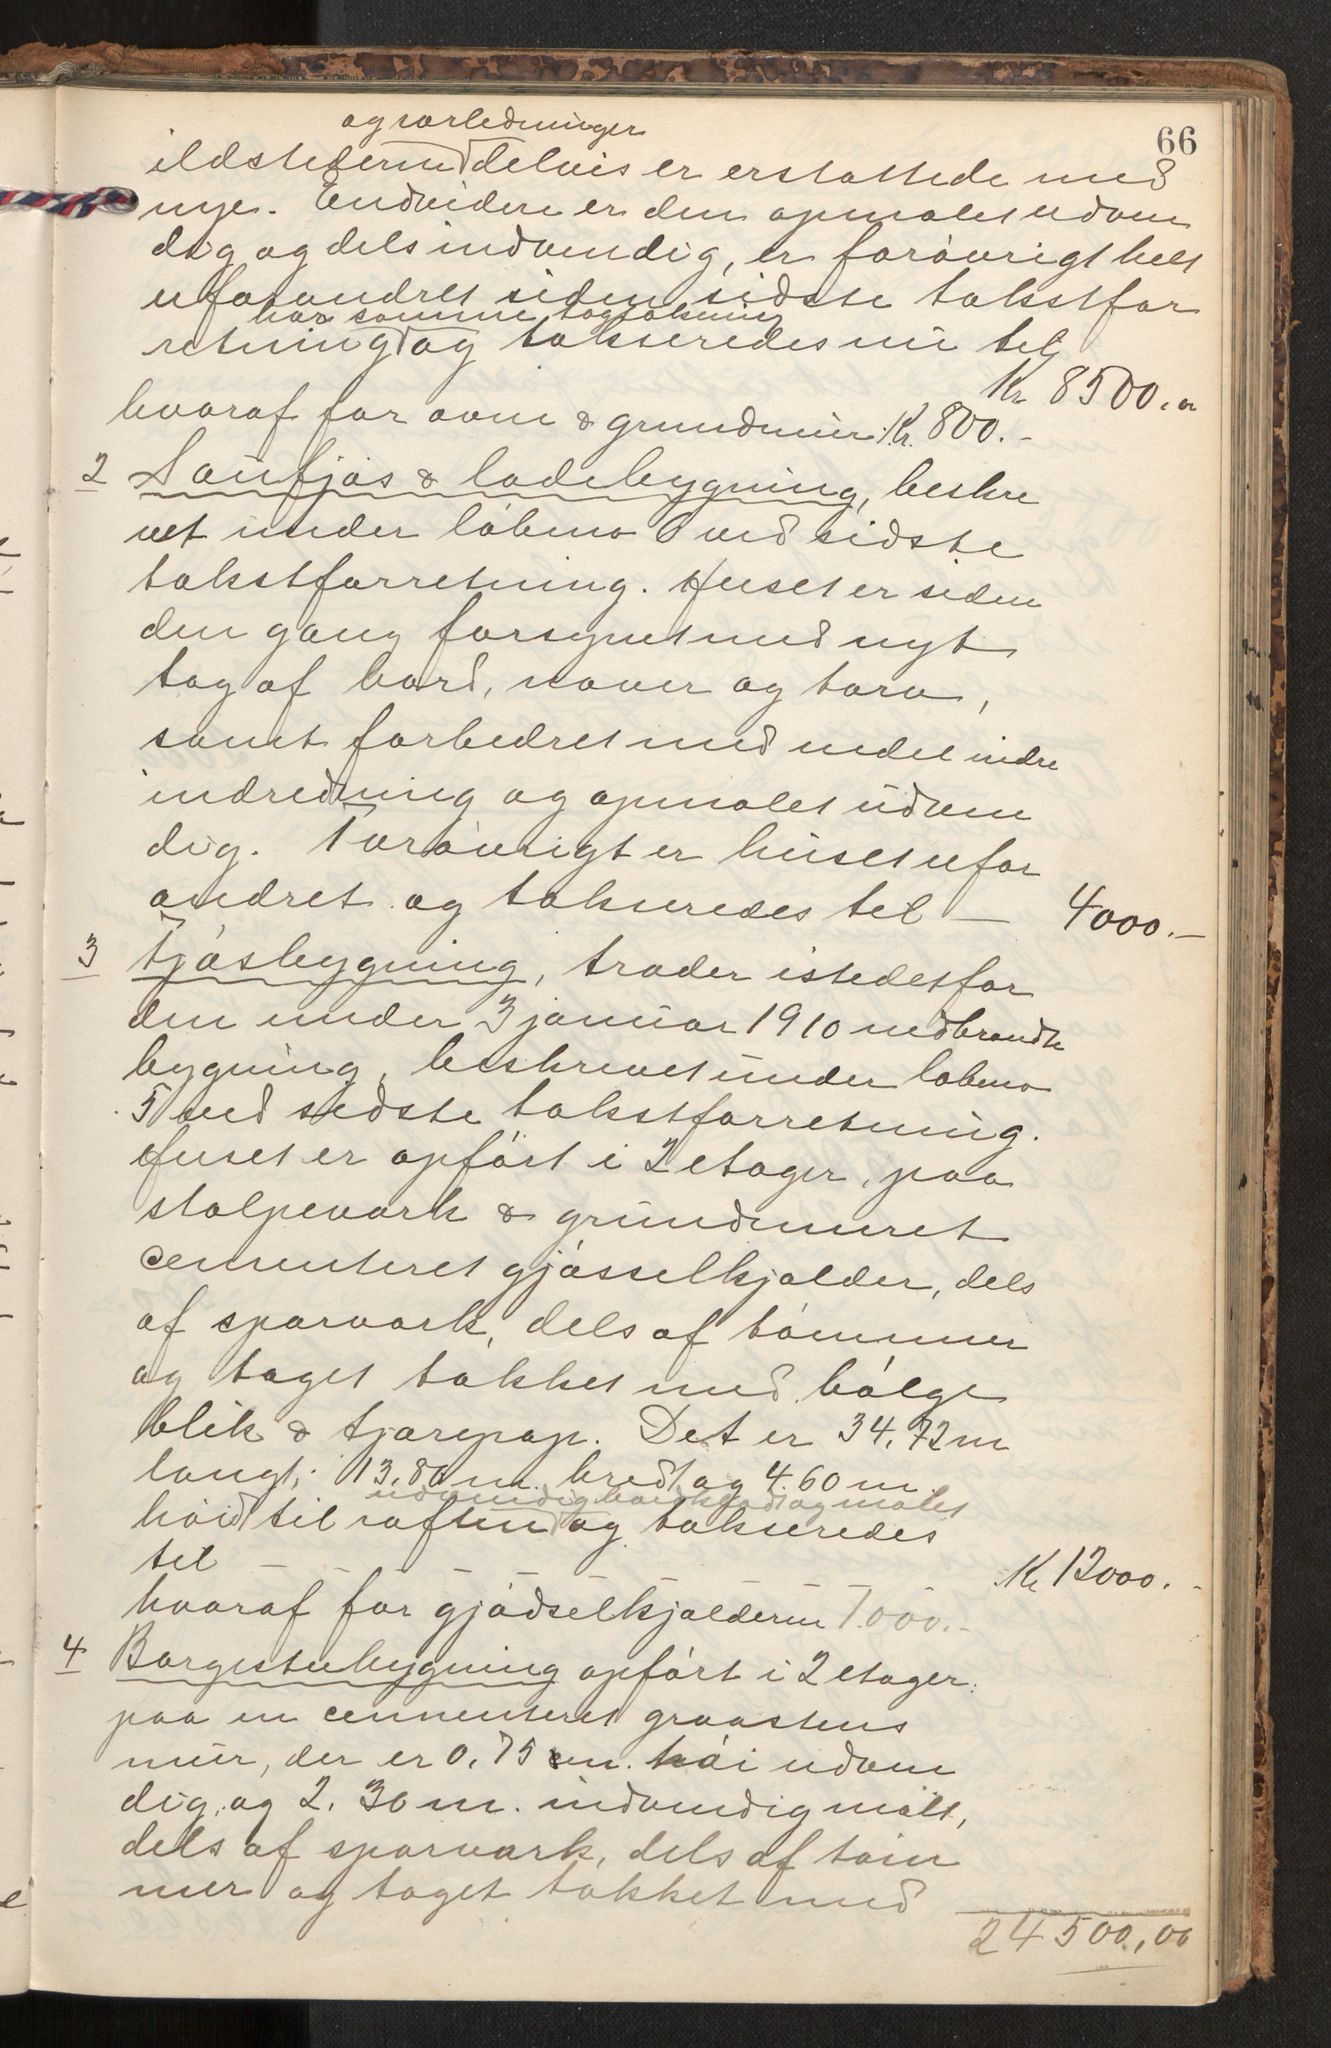 66
og rørledninger
ildstederne delvis er erstattede med
nye. Endvidere er den opmalet udven
dig og dels indvendig, er forøvrigt helt
uforandret siden sidste takstfor
har samme tagtækning
retning og takseredes nu til
Kr 8500.00
hvoraf for ovne & grundmur Kr. 800.-
2 Saufjøs & ladebygning, beskre
vet under løbeno 6 ved sidste
takstforretning. Huset er siden
den gang forsynet med nyt
tag af bord, næver og torv,
samt forbedret med endel indre
indredning og opmalet udven
dig. Forøvrigt er huset ufor
andret og takseredes til — 4000.—
3 Fjøsbygning, træder istedetfor
den under 3 januar 1910 nedbrændte
bygning, beskrevet under løbeno
5 ved sidste takstforretning.
Huset er opført i 2 etager, paa
stolpeværk & grundmuret
cementeret gjødselkjælder, dels
af sperværk, dels af tømmer
og taget tækket med bølge
blik & tjærepap. Det er 34,72 m
langt, 13.80 m. bredt og 4.60 m.
udvendig bordklædt og malet
høid til raften og takseredes
til — — — — — — Kr 12000.-
hvoraf for gjødselkjælderen 7.000.-
4 Borgestubygning opført i 2 etager
paa en cementeret graastens
mur, der er 0.75 m. høi udven
dig, og 2.30 m. indvendig målt,
dels af sperværk, dels af tøm
mer og taget tækket med
24500,00